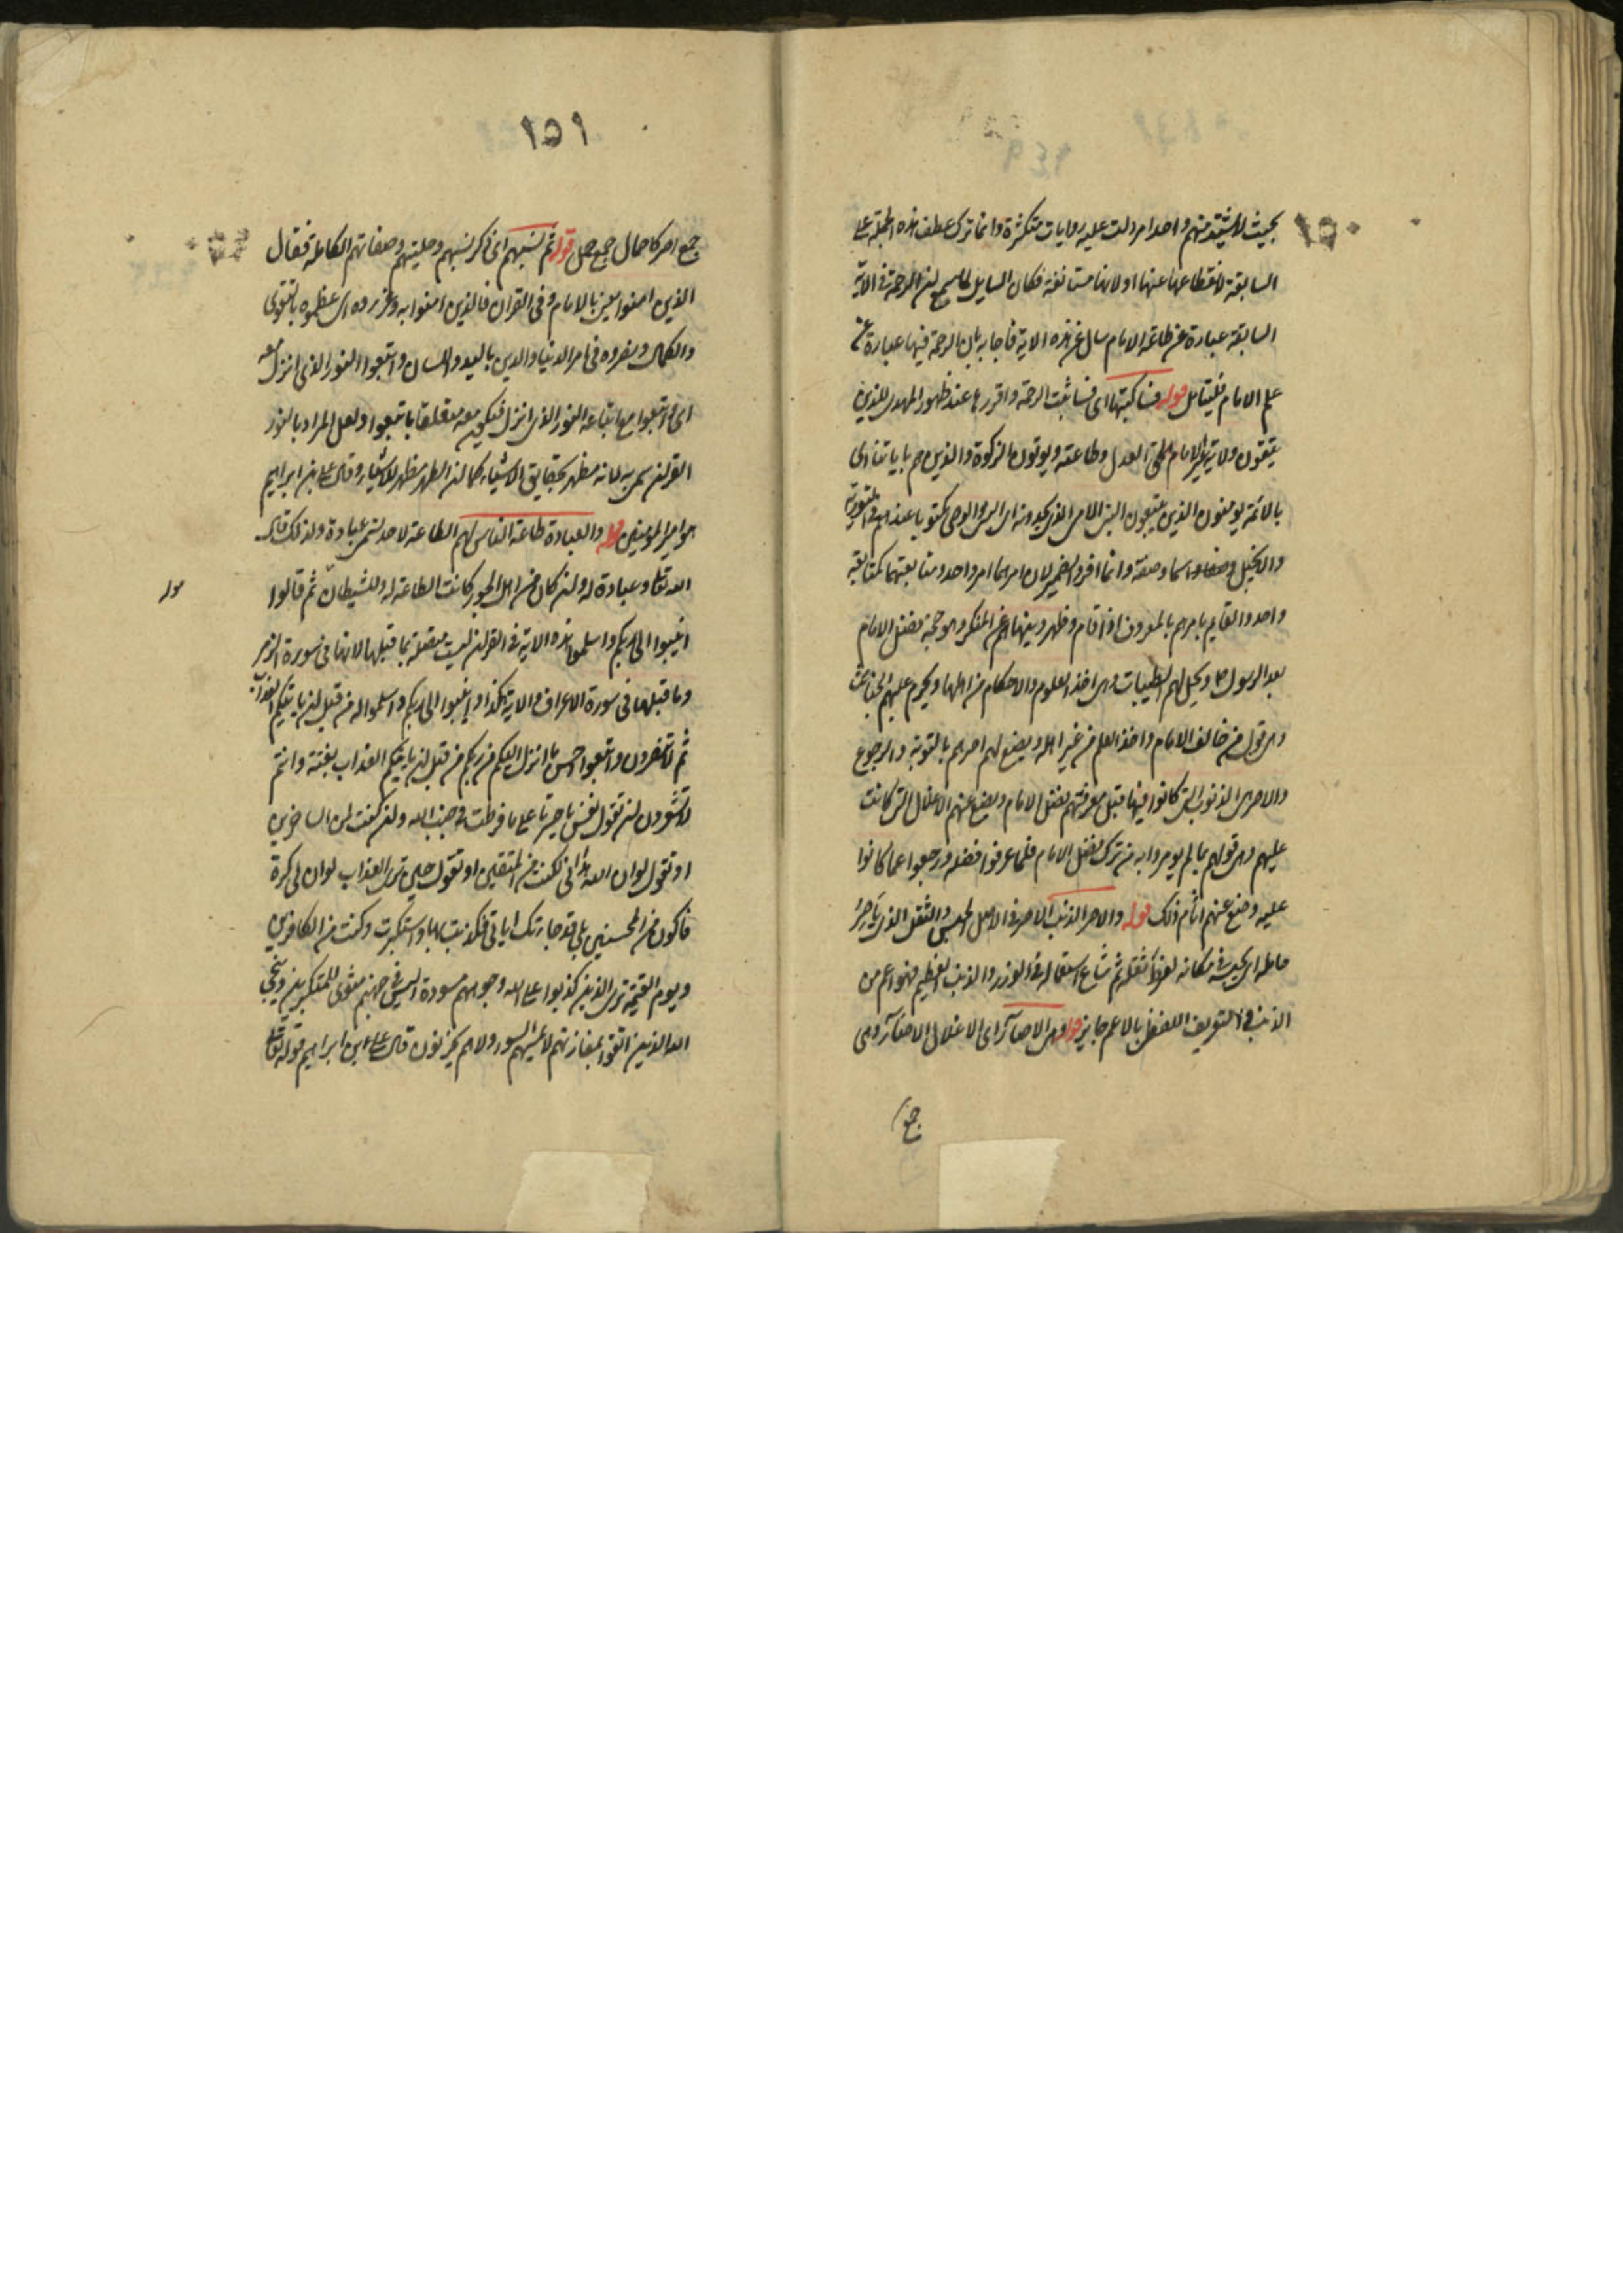 ١٥٠
بحيث لا يشذ منهم واحد امر دلت عليه روايات متكثرة وانما ترك عطف هذه الجملة على
السابقة لانقطاعها عنها او لانها مستانفة فكان السايل لما سمع ان الرحمة في الاية
السابقة عبارة عن طاعة الامام سال عن هذه الاية فاجاب بان الرحمة فيها عبارة عن
علم الامام فليتامل قوله فساكتبها اى فساثبت الرحمة واقررها عند ظهور المهدى للذين
يتقون ولاية غير الامام الحق العدل وطاعته ويوتون الزكوة والذين هم باياتنا اى
بالائمة يومنون الذين يتبعون النبى الامى الذى يجدونه اى النبى والوصى مكتوبا عندهم فى التورية
والانجيل وصفا واسما وصفة وانما افرد الضمير لان امرهما امر واحد ومتابعتهما كمتابعة
واحد والقايم يامرهم بالمعروف اذا قام وظهر وينهاهم عن المنكر وهو حجية فضل الامام
بعد الرسول ص ويحل لهم الطيبات وهى اخذ العلوم والاحكام من اهلها ويحرم عليهم الخبائث
وهى قول من خالف الامام واخذ العلم من غير اهله ويضع لهم اصرهم بالتوبة والرجوع
والاصر هى الذنوب التى كانوا فيها قبل معرفتهم بفضل الامام ويضع عنهم الاغلال التى كانت
عليهم وهى قولهم بما لم يومروا به من ترك فضل الامام فلما عرفوا فضله ورجعوا عما كانوا
عليه وضع عنهم اثام ذلك قوله والاصر الذنب الاصر فى الاصل الحبس والثقل الذى ياصر
حامله اى يحبسه فى مكانه لفرط ثقله ثم شاع استعماله فى الوزر والذنب العظيم فهو اعم من
الذنب والتعريف اللفظى بالاعم جايز قوله وهى الاصار اى الاغلال الاصار وهى
جمع
١٥١
جمع اصر كاحمال جمع حمل قوله ثم نسبهم اى ذكر نسبهم وحليتهم وصفاتهم الكاملة فقال
الذين امنوا يعنى بالامام وفى القران فالذين امنوا به وعزروه اى عظموه بالتقوى
والكمال ونصروه فى امر الدنيا والدين باليد واللسان واتبعوا النور الذى انزل معه
اى واتبعوا مع اتباعه النور الذى انزل فيكون معه متعلقا باتبعوا ولعل المراد بالنور
القران سمى به لانه مظهر لحقايق الاشياء كما ان الطهر مظهر للاشياء وقال على بن ابراهيم
هو امير المومنين قوله والعبادة طاعة الناس لهم الطاعة لاحد تسمى عبادة ولذلك قال
الله تعالى وعبادة له وان كان من اهل الجور كانت الطاعة له وللشيطان ثم قالوا
انيبوا الى ربكم واسلموا هذه الاية فى القران ليست متصلة بما قبلها لانها فى سورة الزمر
وما قبلها فى سورة الاعراف والاية هكذا وانيبوا الى ربكم واسلموا له من قبل ان ياتيكم العذاب
ثم لا تنصرون واتبعوا احسن ما انزل اليكم من ربكم من قبل ان ياتيكم العذاب بغتة وانتم
لا تشعرون ان تقول نفس يا حسرتا على ما فرطت فى جنب الله وان كنت لمن الساخرين
او تقول لو ان الله هدانى لكنت من المتقين او تقول حين ترى العذاب لو ان لى كرة
فاكون من المحسنين بلى قد جاءتك اياتى فكذبت بها واستكبرت وكنت من الكافرين
ويوم القيمة ترى الذين كذبوا على الله وجوههم مسودة اليس فى جهنم مثوى للمتكبرين وينجى
الله الذين اتقوا بمفازتهم لا يمسهم السوء ولا هم يحزنون قال على بن ابراهيم قوله تعالى